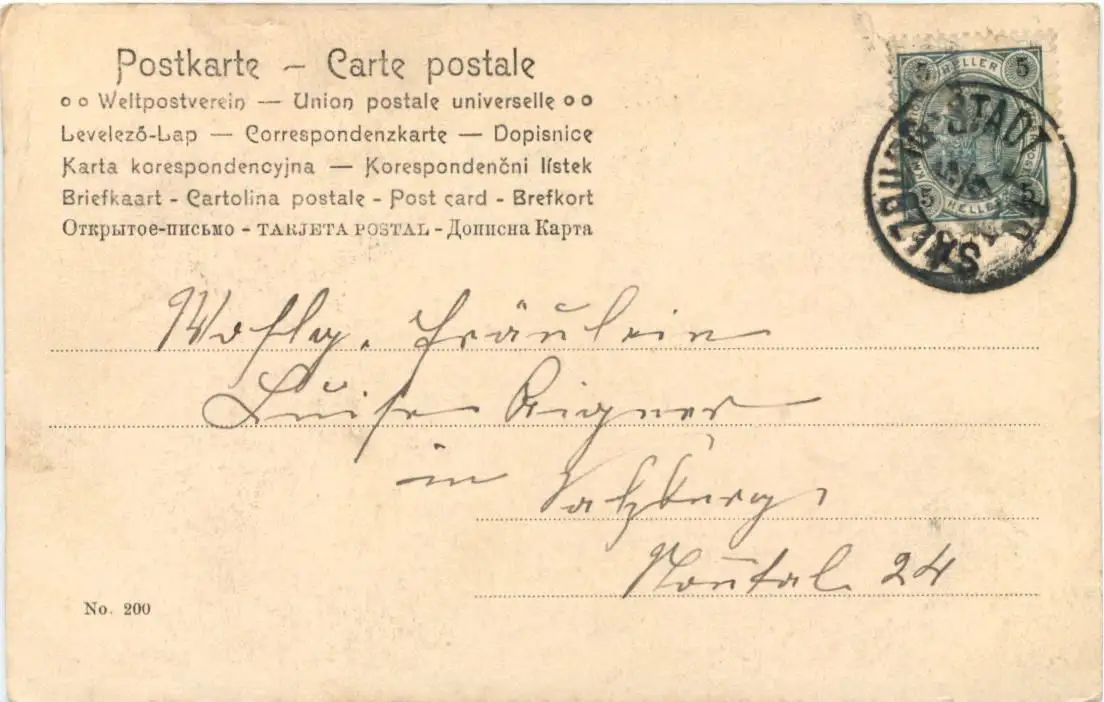 Postkarte – Carte postale
Weltpostverein — Union postale universelle
Levelező-Lap — Correspondenzkarte — Dopisnice
Karta korespondencyjna — Korespondenčni lístek
Briefkaart - Cartolina postale - Post card - Brefkort
Открытое-письмо - TARJETA POSTAL - Дописна Карта
5 HELLER 5
SALZBURG-STADT
5 HELLER 5
Wohlg. Fräulein
Luise Aigner
in Salzburg
24
No. 200